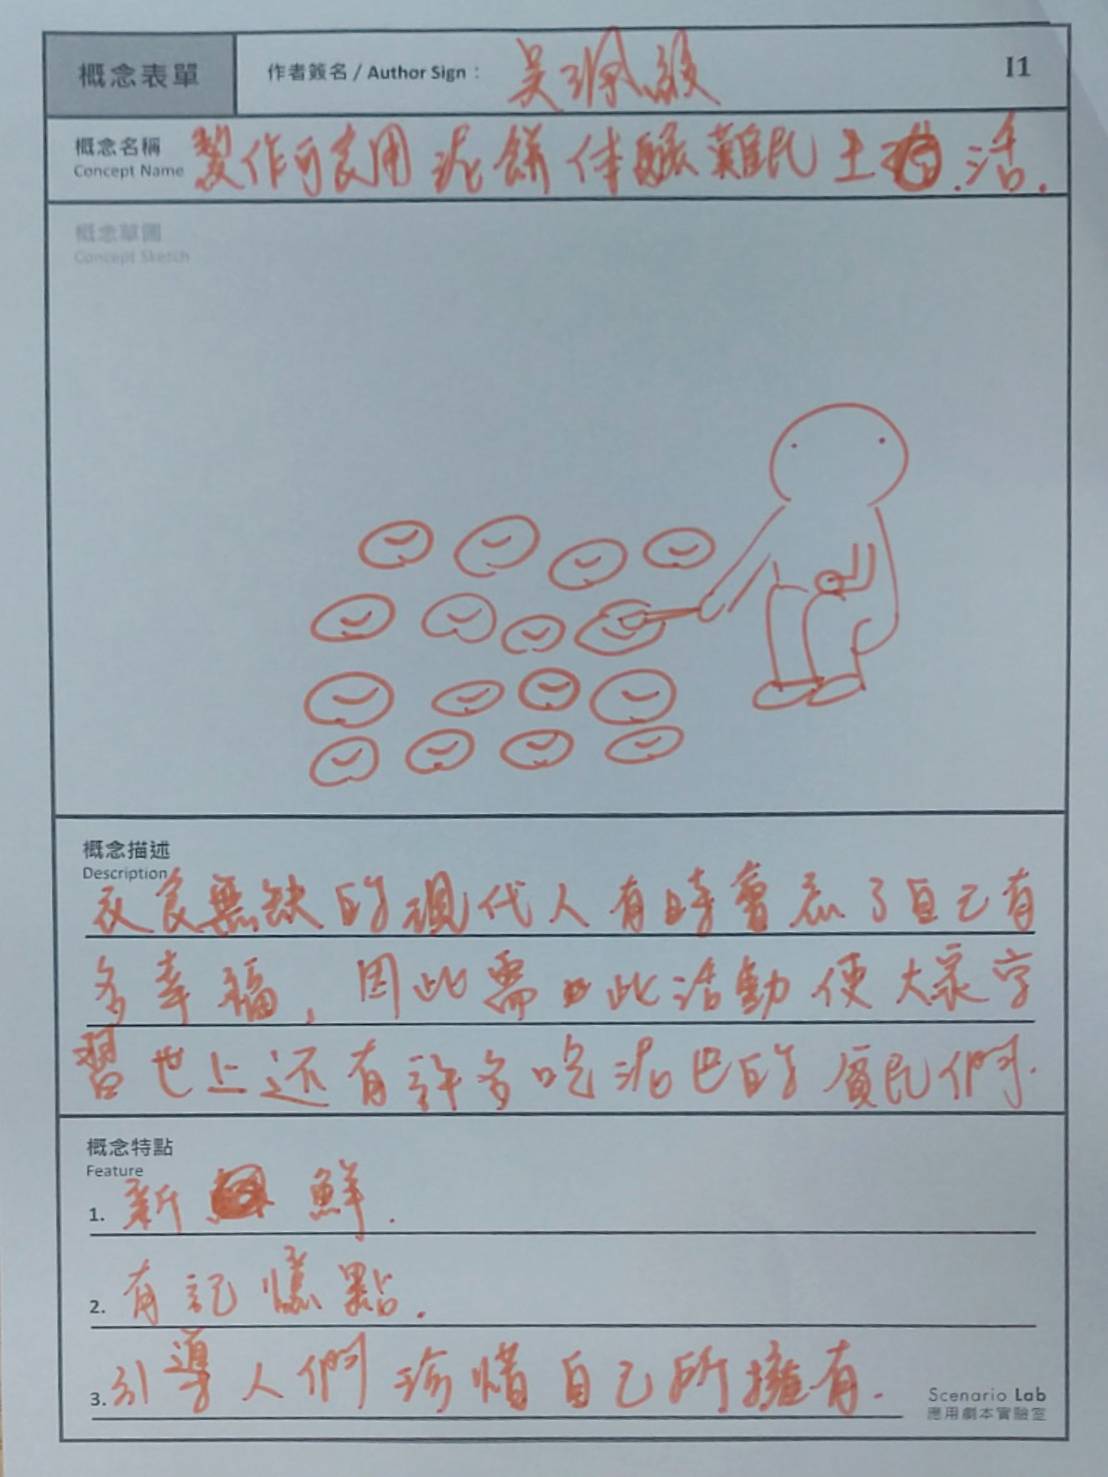 概念表單
作者簽名 / Author Sign：吳珮
I1
概念名稱
Concept Name
製作可食用泥餅体驗難民生活.
概念草圖
Concept Sketch
概念描述
Description
衣食無缺的現代人有時會忘了自己有
多幸福，因此需此活動使大家学
習世上还有許多吃泥巴的貧民們.
概念特點
Feature
1. 新鮮.
2. 有記憶點.
3. 引導人們珍惜自己所擁有.
Scenario Lab
應用劇本實驗室